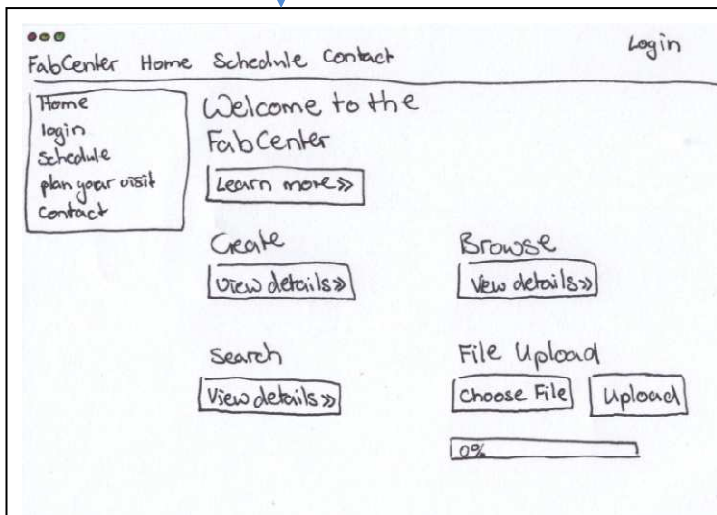 FabCenter Home Schedule Contact
Login
Home
login
Schedule
plan your visit
Contact
Welcome to the
FabCenter
Learn more »
Create
Browse
View details »
View details »
Search
File Upload
View details »
Choose File
Upload
0%